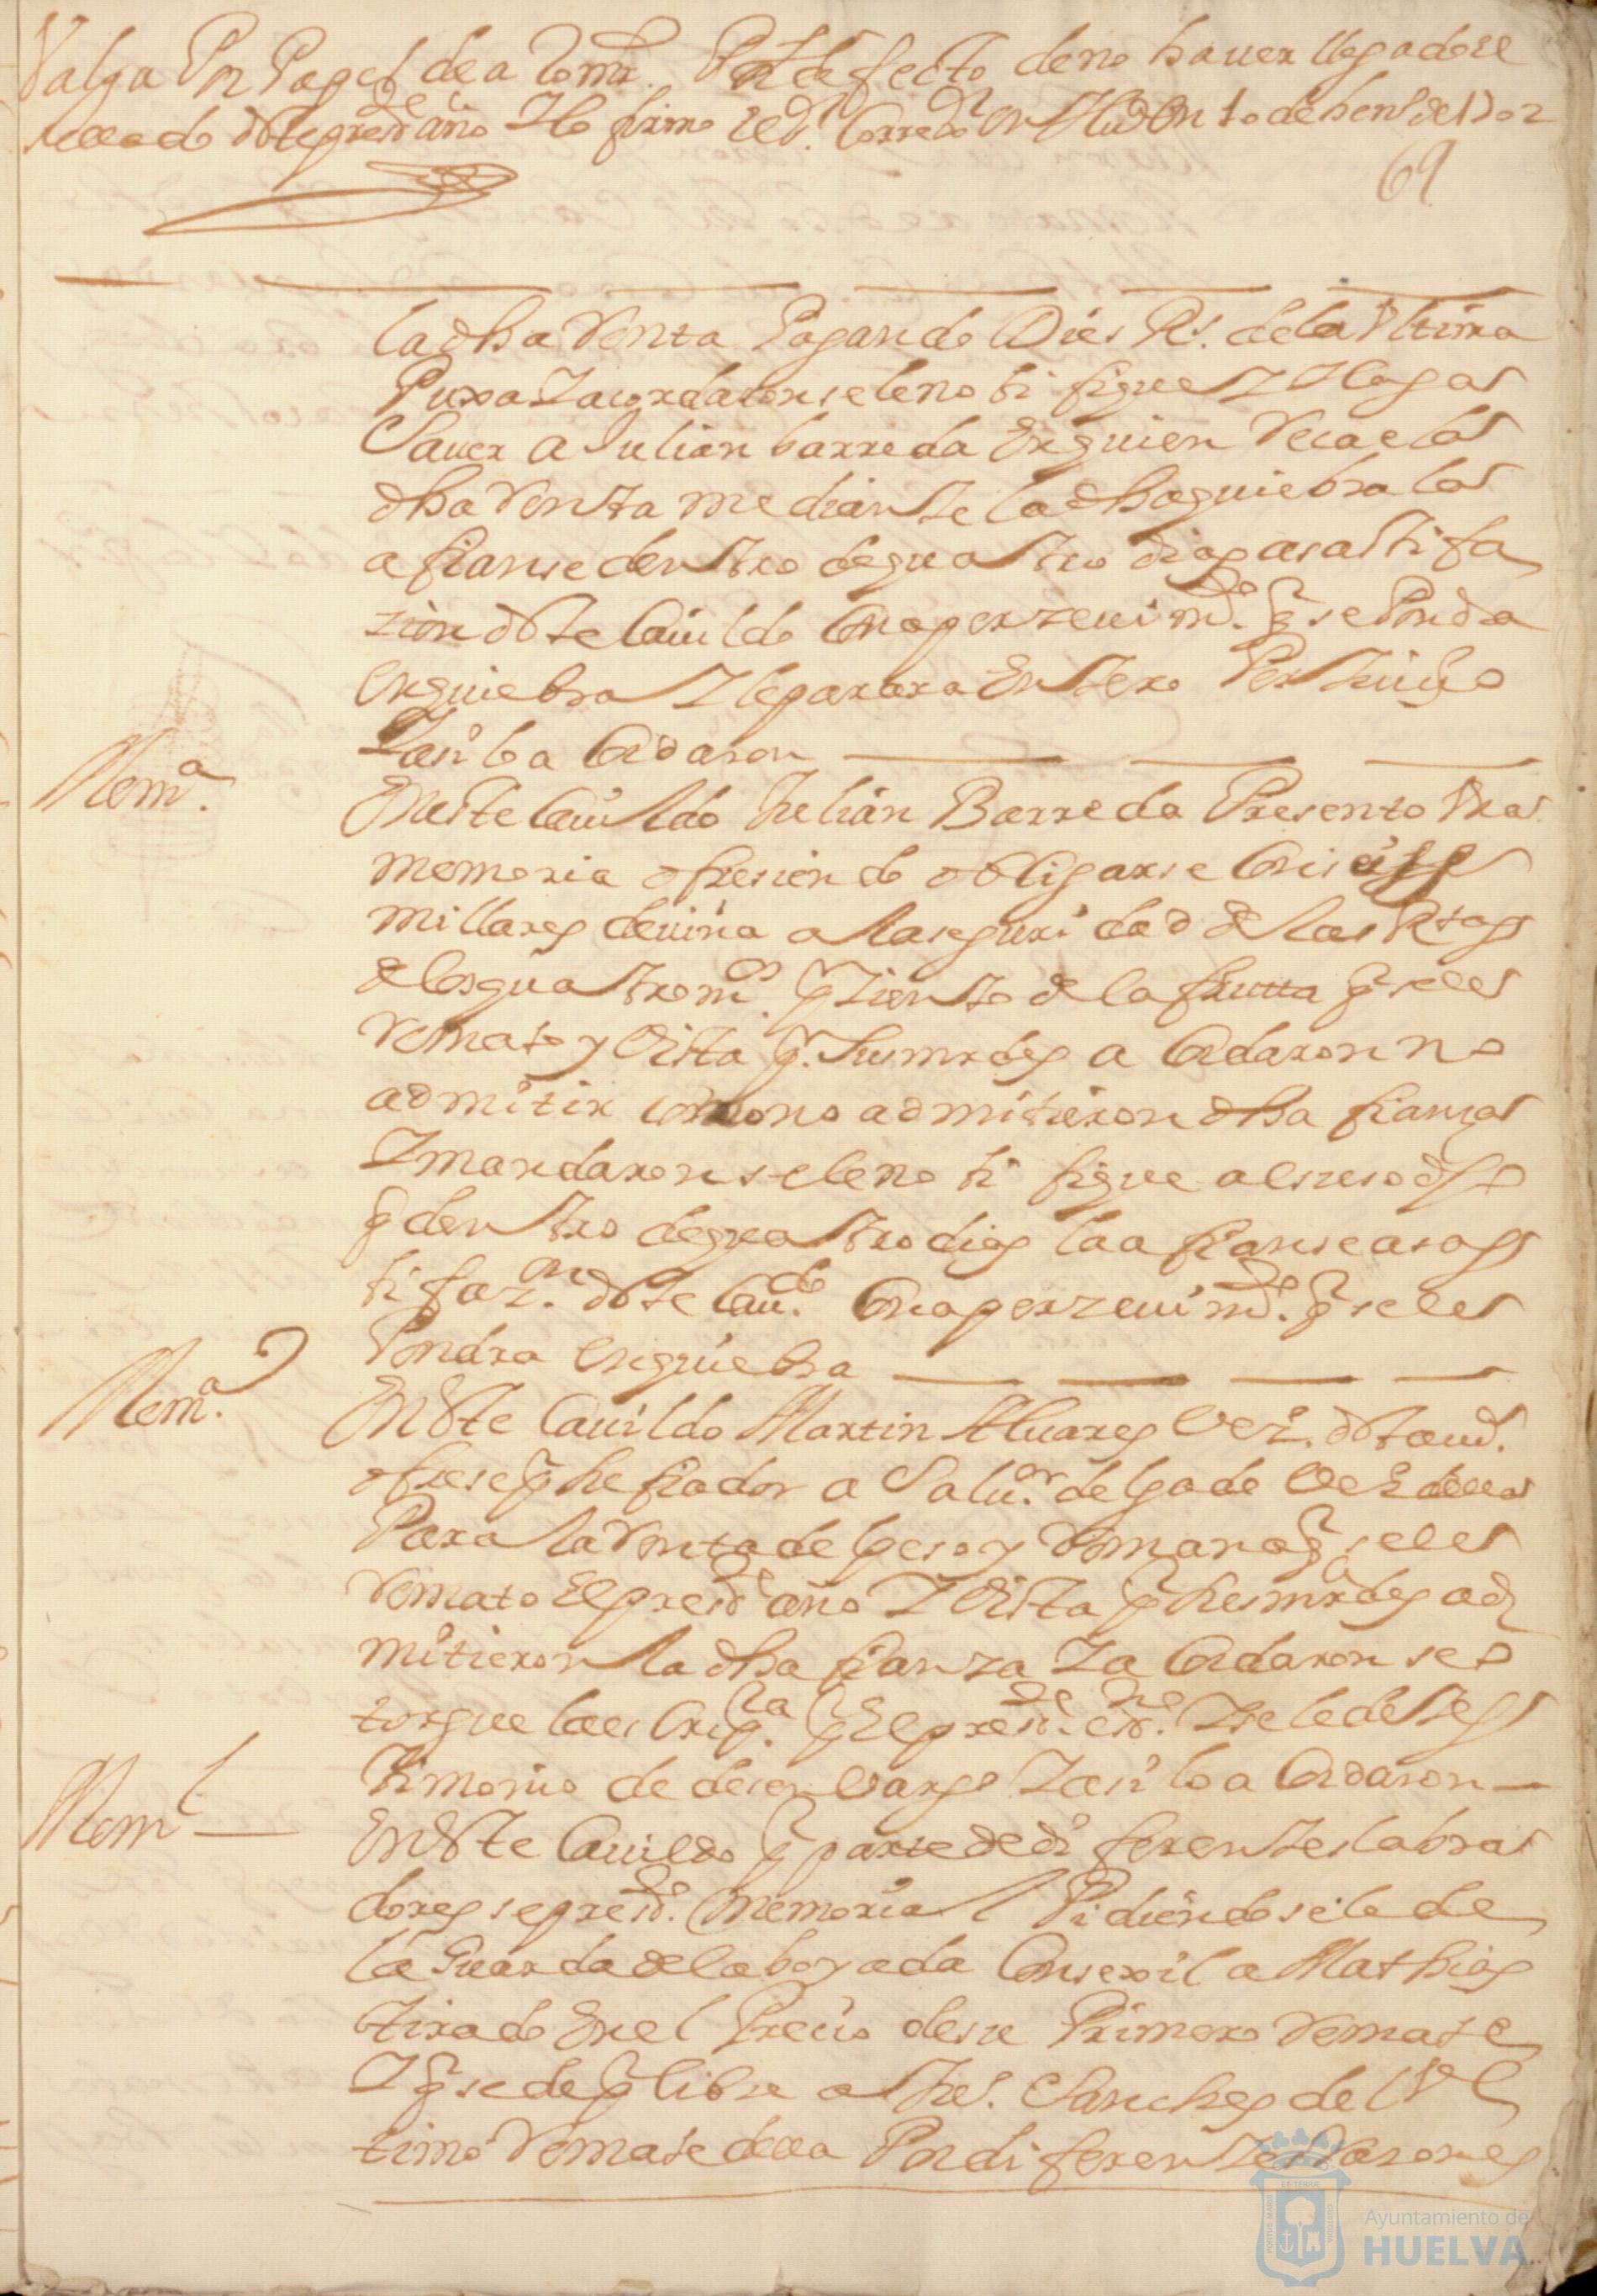 Valga Por Papel de a Dos mrs. Por defecto de no hauer llegado el
sellado deste presente año Y lo firmo el Sr. Corredor en Huelva en 1o de hene de 1702
69
la dha Renta Pagando Dies Rs. de la Vltima
Puxa Y acordaron se le notifique Y haga
Sauer a Julian barreda En quien Recae la
dha Renta mediante la dha quiebra la
afianse dentro de quatro dias a satisfa
zion deste Cauildo Con aperzeuimto. q se Pondra
en quiebra Y le parara Entero Perjuicio
Y asi lo a Cordaron
Mema.
En este Cauildo Julian Barreda Presento Vna
memoria ofresiendo obligarse Con seis
millares de uiña a la seguridad de las Rtas
de los quatro mrs. q Ziento de la frutta q se le
Remato y Vista q. Sus mrdes a Cordaron no
admitir Como no admitieron dha fianza
Y mandaron se le notifique al suso dho
q dentro de quatro dias la a fianse a sa
tifazon. deste Cauo. Con aperzeuimto. q se le
Pondra en quiebra
Mema.
En este Cauildo Martin Aluares Vez. desta ud.
ofrese q su fiador a Salur. delgado Vez della
Para la Renta del peso y Romana q se le
Remato El preste año Y Vista q sus mrdes ad
mitieron la dha fianza Y a Cordaron se o
torgue la escripra. q El preste. esno. Y se le de tes
timonio de desencargo Y asi lo a Cordaron
Meml
En este Cauildo q parte de diferentes labra
dores se presto. Memorial Pidiendo se le de
la Guarda de la boyada Consexil a Mathias
tirado En el Precio de su Primero Remate
Y q se de q libre a Jus. Sanches del Vl
timo Remate della Por diferentes Rasones
Ayuntamiento de
HUELVA